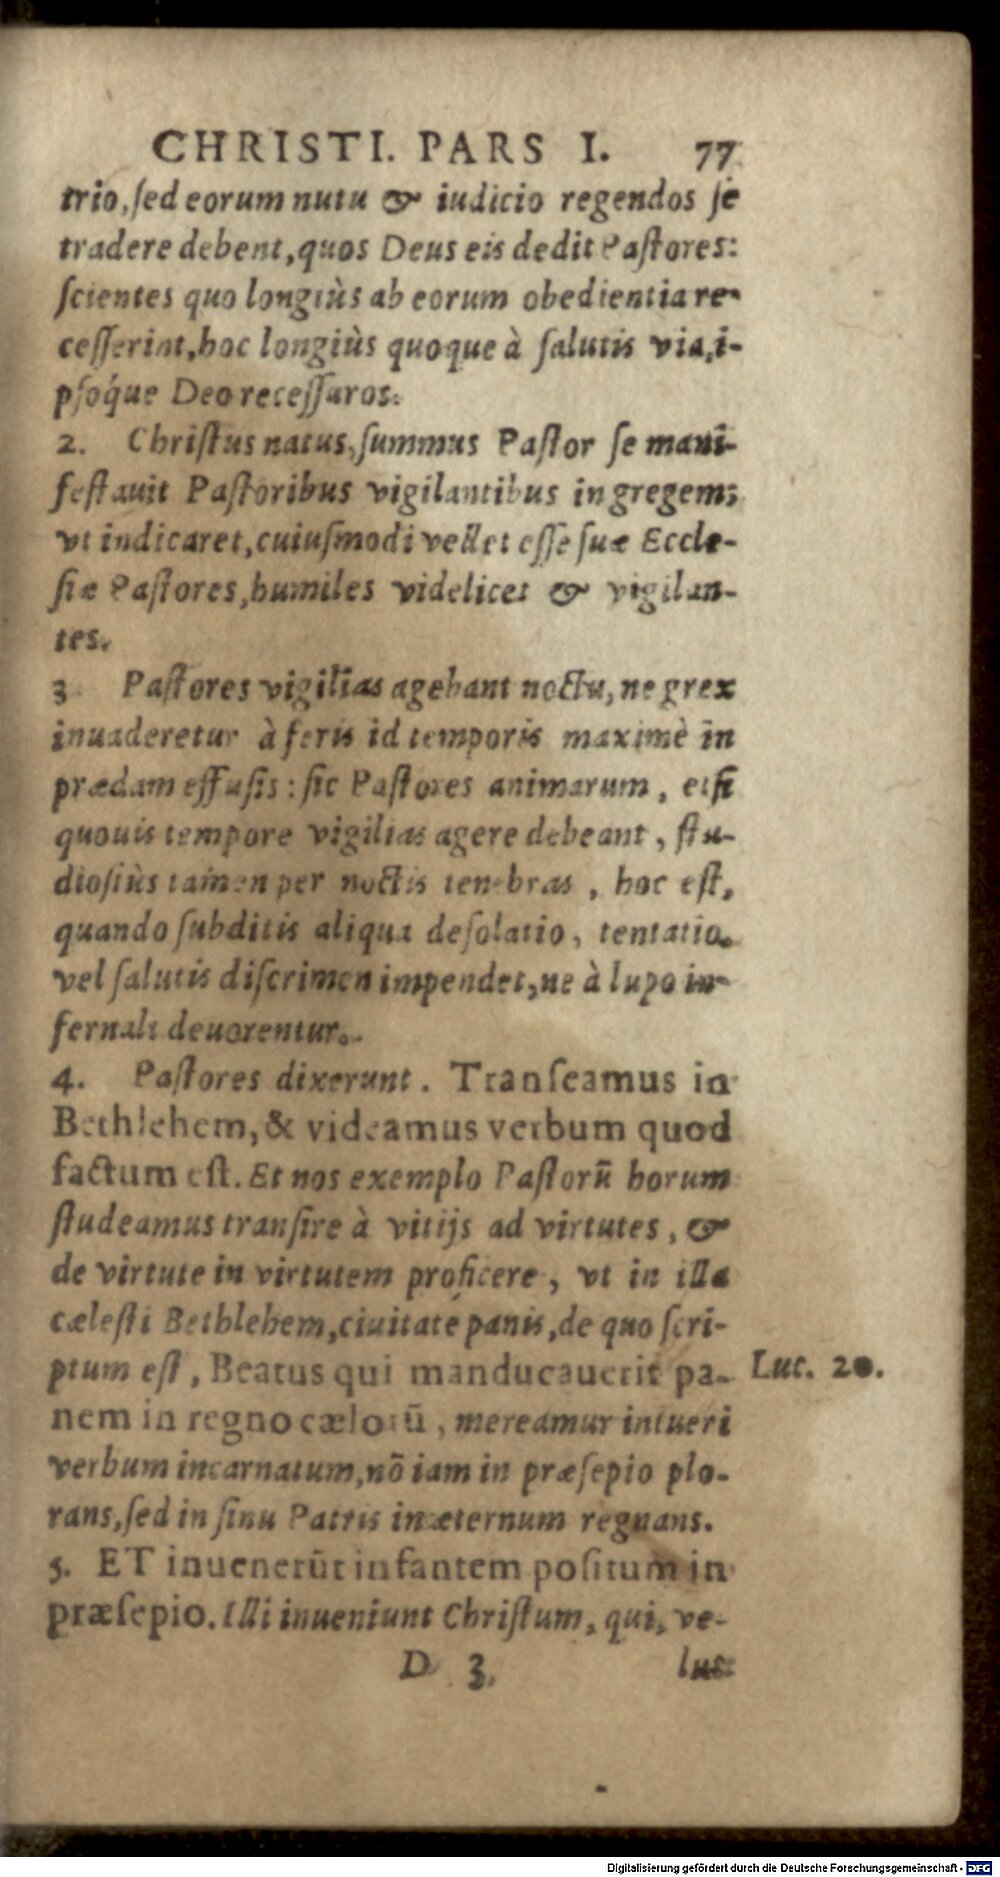 CHRISTI. PARS I. 77
trio, sed eorum nutu & iudicio regendos se
tradere debent, quos Deus eis dedit Pastores:
scientes quo longiùs ab eorum obedientia re-
cesserint, hoc longiùs quoque à salutis via, i-
psóque Deo recessuros.
2. Christus natus, summus Pastor se mani-
festauit Pastoribus vigilantibus in gregem;
vt indicaret, cuiusmodi vellet esse suæ Eccle-
siæ Pastores, humiles videlicet & vigilan-
tes.
3 Pastores vigilias agebant noctu, ne grex
inuaderetur à feris id temporis maximè in
prædam effusis: sic Pastores animarum, etsi
quouis tempore vigilias agere debeant, stu-
diosiùs tamen per noctis tenebras, hoc est,
quando subditis aliqua desolatio, tentatio
vel salutis discrimen impendet, ne à lupo in-
fernali deuorentur.
4. Pastores dixerunt. Transeamus in
Bethlehem, & videamus verbum quod
factum est. Et nos exemplo Pastorũ horum
studeamus transire à vitijs ad virtutes, &
de virtute in virtutem proficere, vt in illa
cælesti Bethlehem, ciuitate panis, de quo scri-
ptum est, Beatus qui manducauerit pa-
nem in regno cælorũ, mereamur intueri
verbum incarnatum, nõ iam in præsepio plo-
rans, sed in sinu Patris in æternum regnans.
5. ET inuenerũt infantem positum in
præsepio. Illi inueniunt Christum, qui, ve-
D 3. lut
Luc. 20.
Digitalisierung gefördert durch die Deutsche Forschungsgemeinschaft - DFG